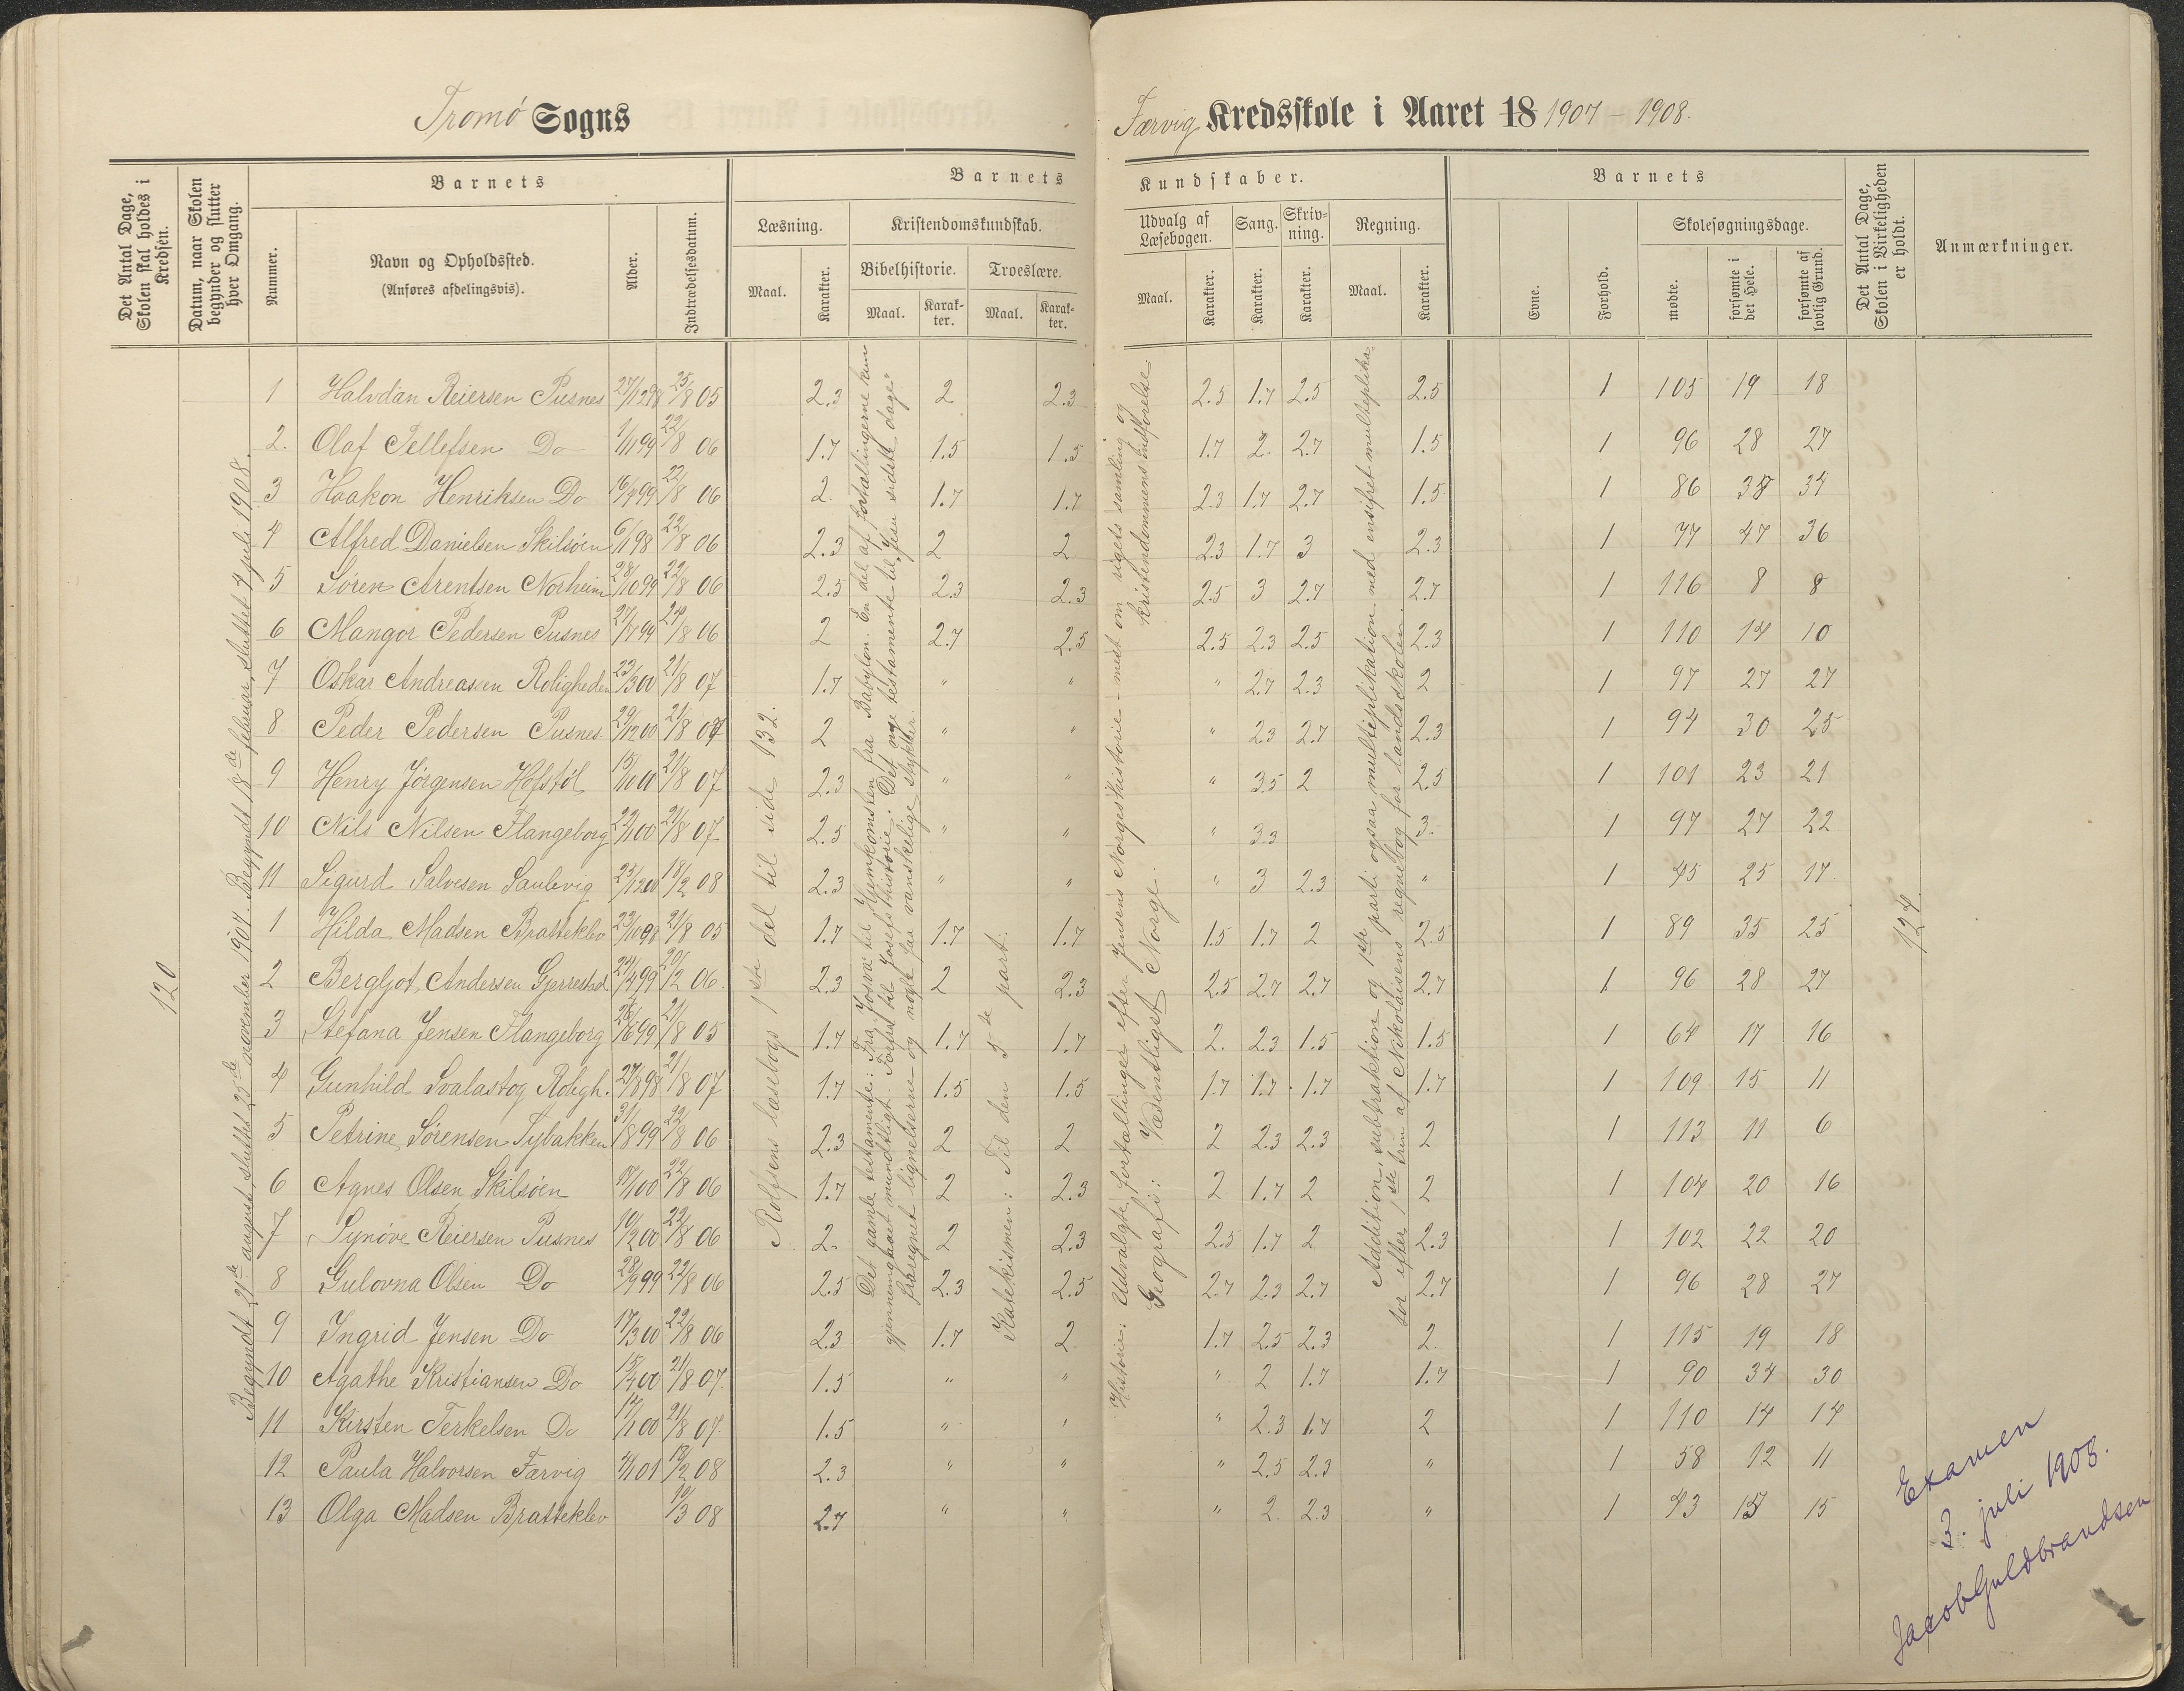 Tromø Sogns
Færvig Kredsskole i Aaret 18 1907 – 1908.
Det Antal Dage, Skolen skal holdes i Kredsen.
Datum, naar Skolen begynder og slutter hver Omgang.
Barnets
Nummer.
Navn og Opholdssted.
(Anføres afdelingsvis).
Alder.
Indtrædelsesdatum.
Barnets
Læsning.
Maal.
Karakter.
Kristendomskundskab.
Bibelhistorie.
Maal.
Karakter.
Troeslære.
Maal.
Karakter.
Kundskaber.
Udvalg af Læsebogen.
Maal.
Karakter.
Sang.
Karakter.
Skrivning.
Karakter.
Regning.
Maal.
Karakter.
Barnets
Evne.
Forhold.
Skolesøgningsdage.
mødte.
forsømte i det Hele.
forsømte af lovlig Grund.
Det Antal Dage, Skolen i Virkeligheden er holdt.
Anmærkninger.
120
Begyndt 21de august, sluttet 25de november 1907. Begyndt 18de februar, sluttet 4 juli 1908.
Rolfsens læsebogs 1ste del til side 132.
Det gamle testamente: Fra Josva til Hjemkomsten fra Babylon. En del af fortællingerne kun
gjennemgaaet mundtligt. Fortsat til Josefs historie. Det nye testamente til "Jesu sidste dage"
fraregnet lignelserne og nogle faa vanskelige stykker.
Katekismen: Til den 5de part.
Historie: Udvalgte fortællinger efter Jensens Norgeshistorie – mest om rigets samling og
kristendommens indførelse.
Geografi: Væsentligst Norge.
Addition, subtraktion og 1ste parti ogsaa multiplikation med ensifret multiplika-
tor efter 1ste trin af Nikolaisens regnebog for landsskolen.
1 Halvdan Reiersen Pusnes 27/12 98 25/8 05 2.3 2 2.3 2.5 1.7 2.5 2.5 1 105 19 18
2. Olaf Tellefsen Do 1/11 99 22/8 06 1.7 1.5 1.5 1.7 2. 2.7 1.5 1 96 28 27
3 Haakon Henriksen Do 22/8 06 2. 1.7 1.7 2.3 1.7 2.7 1.5 1 86 38 34
4 Alfred Danielsen Skilsøen 22/8 06 2.3 2 2 2.3 1.7 3 2.3 1 77 47 36
5 Søren Arentsen Norheim 28/10 99 22/8 06 2.5 2.3 2.3 2.5 3 2.7 2.7 1 116 8 8
6 Mangor Pedersen Pusnes 2 2.7 2.5 2.5 2.3 2.5 2.3 1 110 14 10
7 Oskar Andreassen Roligheden 23/3 00 21/8 07 1.7 " " " 2.7 2.3 2 1 97 27 27
8 Peder Pedersen Pusnes 29/12 00 21/8 07 2 " " " 2.3 2.7 2.3 1 94 30 25
9 Henry Jørgensen Hofstøl 21/8 07 2.3 " " " 3.5 2 2.5 1 101 23 21
10 Nils Nilsen Flangeborg 21/8 07 2.5 " " " 3.3 3. 1 97 27 22
11 Sigurd Salvesen Saulevig 25/12 00 18/2 08 2.3 " " " 3 2.3 " 1 45 25 17
1 Hilda Madsen Bratteklev 23/10 98 21/8 05 1.7 1.7 1.7 1.5 1.7 2 2.5 1 89 35 25
2 Bergljot Andersen Gjerrestad 20/2 06. 2.3 2 2.3 2.5 2.7 2.7 2.7 1 96 28 27
3 Stefana Jensen Flangeborg 21/8 05 1.7 1.7 1.7 2. 2.3 1.5 1.5 1 64 17 16
4 Gunhild Svalastog Roligh. 27/8 98 21/8 07 1.7 1.5 1.5 1.7 1.7 1.7 1.7 1 109 15 11
5 Petrine Sørensen Tybakken 31/8 99 22/8 06 2.3 2 2 2 2.3 2.3 2 1 113 11 6
6 Agnes Olsen Skilsøen 22/8 06 1.7 2 2.3 2 1.7 2 2 1 104 20 16
7 Synøve Reiersen Pusnes 22/8 06 2. 2 2.3 2.5 1.7 2 2.3 1 102 22 20
8 Gulovna Olsen Do 28/9 99 22/8 06 2.5 2.3 2.5 2.7 2.3 2.7 2.7 1 96 28 27
9 Ingrid Jensen Do 17/3 00 22/8 06 2.3 1.7 2. 1.7 2.5 2.3 2. 1 115 19 18
10 Agathe Kristiansen Do 15/4 00 21/8 07. 1.5 " " " 2 1.7 1.7 1 90 34 30
11 Kirsten Terkelsen Do 21/8 07. 1.5 " " " 2.3 1.7 2 1 110 14 14
12 Paula Halvorsen Færvig 18/2 08 2.3 " " " 2.5 2.3 " 1 58 12 11
13 Olga Madsen Bratteklev 08 2.7 " " " 2. 2.3 " 1 43 15
124
Examen
3. juli 1908.
Jacob Guldbrandsen